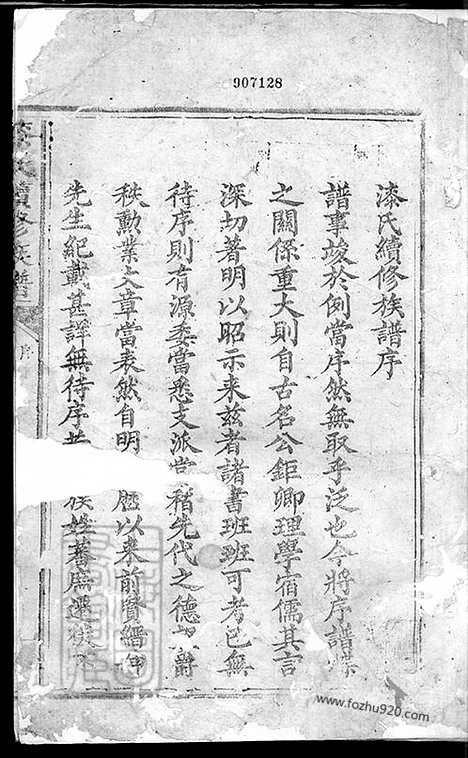 907128
漆氏續修族譜序
譜事竣於例當序然無取乎泛也今將序譜
之關係重大則自古名公鉅卿理學宿儒其言
深切著明以昭示来兹者諸書班班可考已無
待序則有源委當悉支派當稽先代之德 爵
秩勳業文章當表然自明 歷以来前賢縉紳
先生紀載甚詳無待序 族姓蕃庶遷徙
氏續修族譜
序
www.fozhu920.com